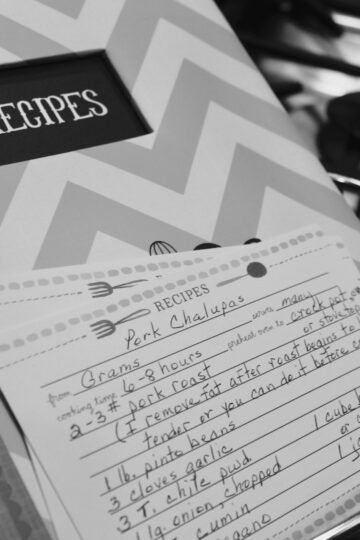 RECIPES
RECIPES
Pork Chalupas
from Grams serves many
cooking time 6-8 hours preheat oven to crock pot
2-3# pork roast or stove top
(I remove fat after roast begins to
tender or you can do it before
1 lb. pinto beans
3 cloves garlic 1 cube
3 T. chile pwd or
1 lg. onion, chopped 1 j
cumin